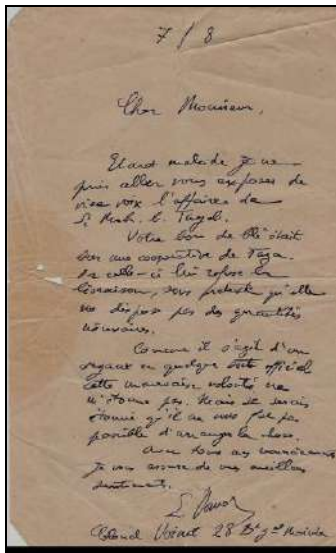 7/8
Cher Monsieur,
Etant malade je ne
puis aller vous exposer de
vive voix l'affaire de
Si Moh. b. Tayeb.
Votre bon de blé était
sur une coopérative de Taza.
Or celle-ci lui refuse la
livraison, sous prétexte qu'elle
ne dispose pas des quantités
nécessaires.
Comme il s'agit d'un
organe en quelque sorte officiel
cette mauvaise volonté ne
m'étonne pas. Mais je serais
étonné qu'il ne vous fût pas
possible d'arranger la chose.
Avec tous mes remerciements
je vous assure de mes meilleurs
sentiments.
28